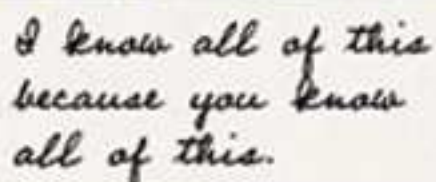 I know all of this
because you know
all of this.